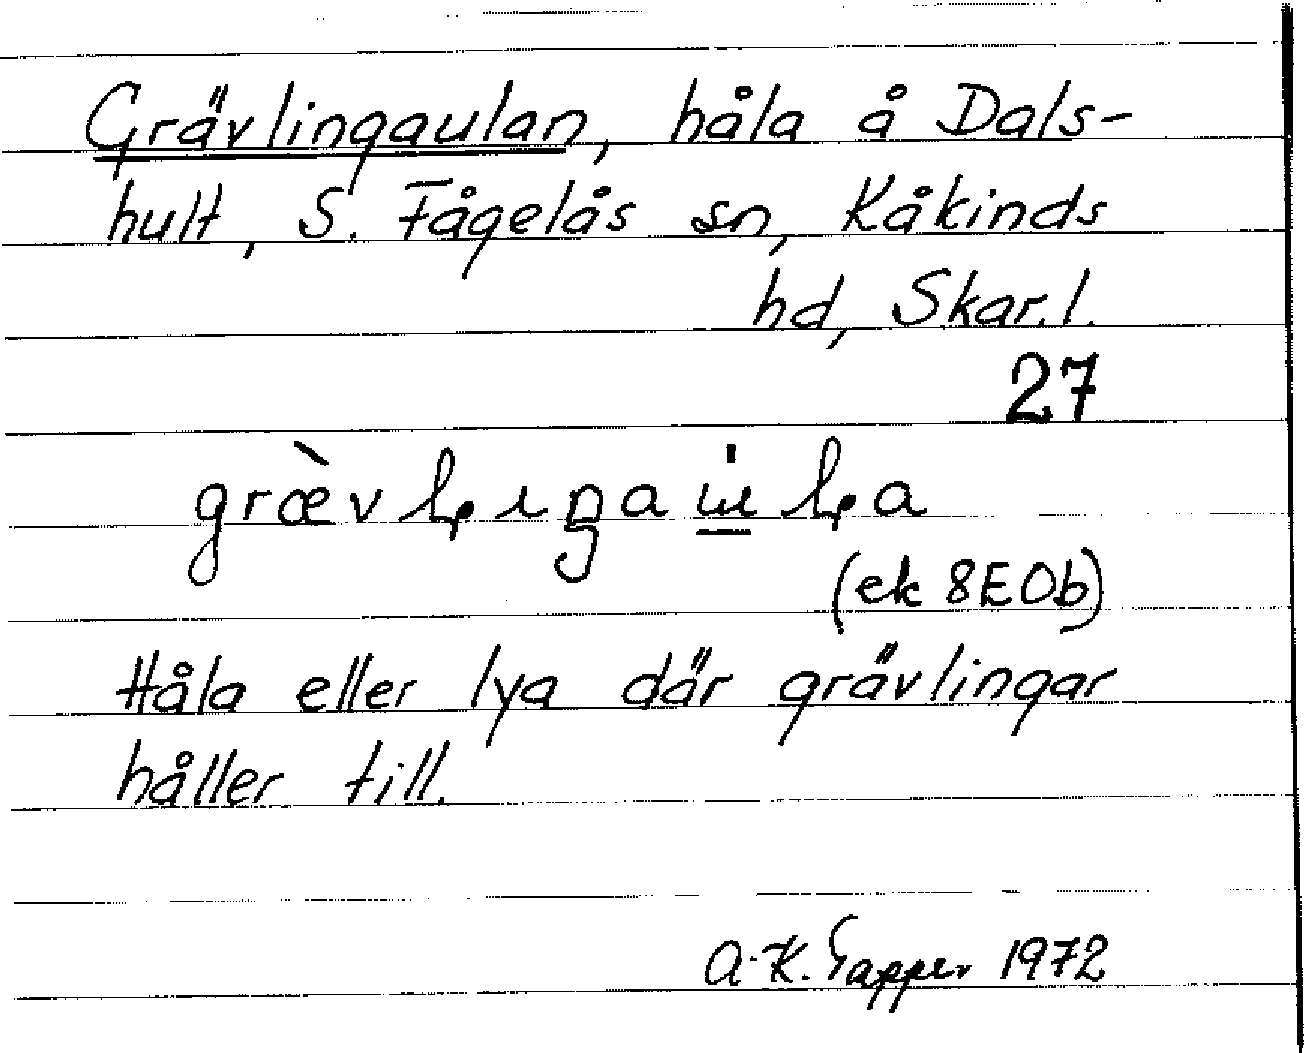 Grävlingaulan, håla å Dals-
hult, S. Fågelås sn, Kåkinds
hd, Skar. l.
27
(ek 8E0b)
Håla eller lya där grävlingar
håller till.
A.K. Tapper 1972